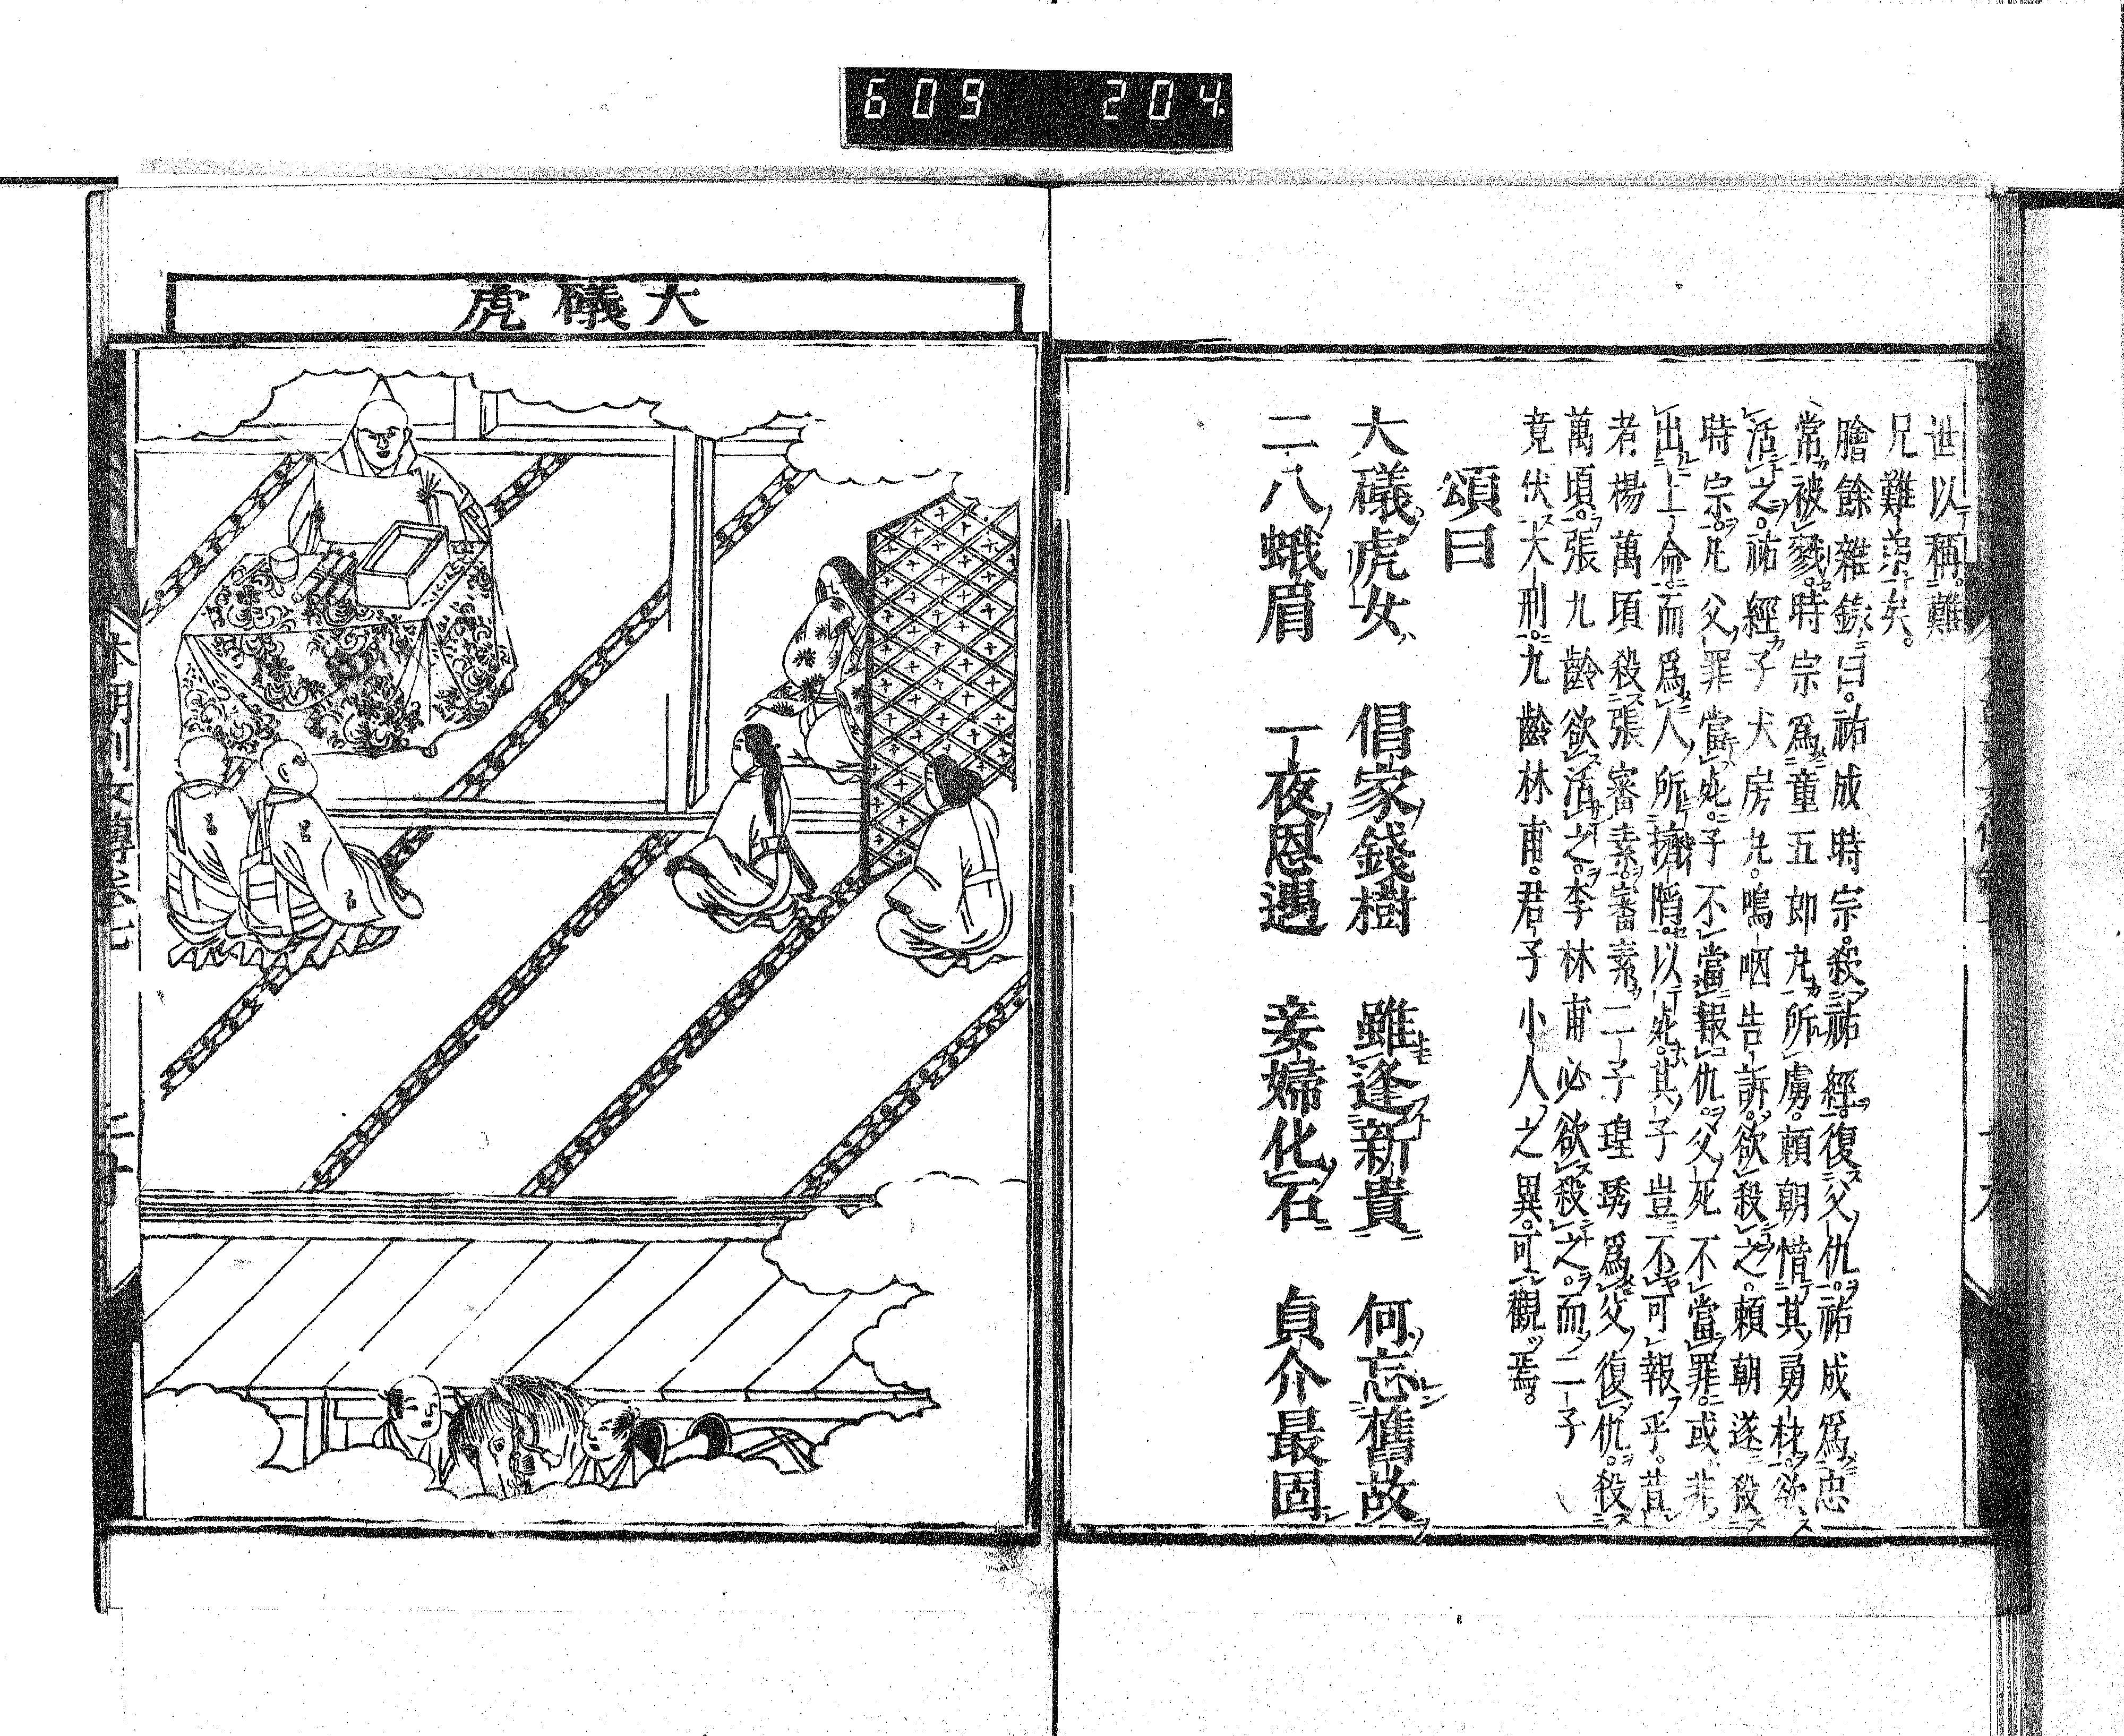 609 204
世以稱。難
兄難弟矣。
膾餘雜錄曰。祐成時宗。殺祐經。復父仇。祐成爲忠
常被戮。時宗爲童五郎丸所虜。賴朝惜其勇材。欲
活之。祐經子犬房丸。嗚咽告訴。欲殺之。賴朝遂殺
時宗。凡父罪當死。子不當報仇。父死不當罪。或非
出上命。而爲人所擠陷。以死。其子豈不可報乎。昔
者楊萬頃殺張審素。審素二子瑝琇爲父復仇。殺
萬頃。張九齡欲活之。李林甫必欲殺之。而二子
竟伏大刑。九齡林甫。君子小人之異。可觀焉。
頌曰
大礒虎女 倡家錢樹 雖逢新貴 何忘舊故
二八蛾眉 一夜恩遇 妾婦化石 貞介最固
大礒虎
本朝列女傳卷七